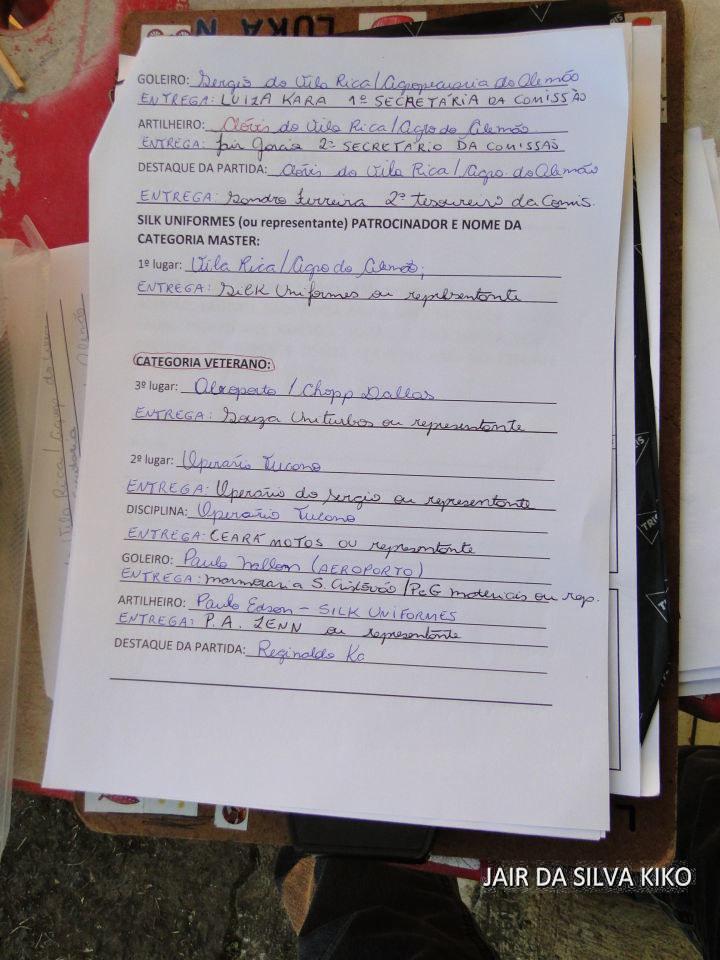 LUKA N
GOLEIRO: Sergio do Vila Rica/Agropecuaria do Alemão
ENTREGA: LUIZA KARA 1ª SECRETÁRIA DA COMISSÃO
ARTILHEIRO: Clóvis do Vila Rica/Agro do Alemão
ENTREGA: Jair Garcia 2º SECRETÁRIO DA COMISSÃO
DESTAQUE DA PARTIDA: Clóvis do Vila Rica/Agro. do Alemão
ENTREGA: Sandro Ferreira 2º Tesoureiro da Comis.
SILK UNIFORMES (ou representante) PATROCINADOR E NOME DA
CATEGORIA MASTER:
1º lugar: Vila Rica/Agro do Alemão;
ENTREGA: Silk Uniformes ou representante
CATEGORIA VETERANO:
3º lugar: Aeroporto / Chopp Dallas
ENTREGA: Souza Uniturbos ou representante
2º lugar: Operário Tucano
ENTREGA: Operario do Sergio ou representante
DISCIPLINA: Operário Tucano
ENTREGA: CEARÁ MOTOS OU representante
GOLEIRO: Paulo (AEROPORTO)
ENTREGA: Marmoraria S. Cristóvão /PeG materiais ou rep.
ARTILHEIRO: Paulo Edson - SILK UNIFORMES
ENTREGA: P.A. ZENN ou representante
DESTAQUE DA PARTIDA: Reginaldo Ko
JAIR DA SILVA KIKO